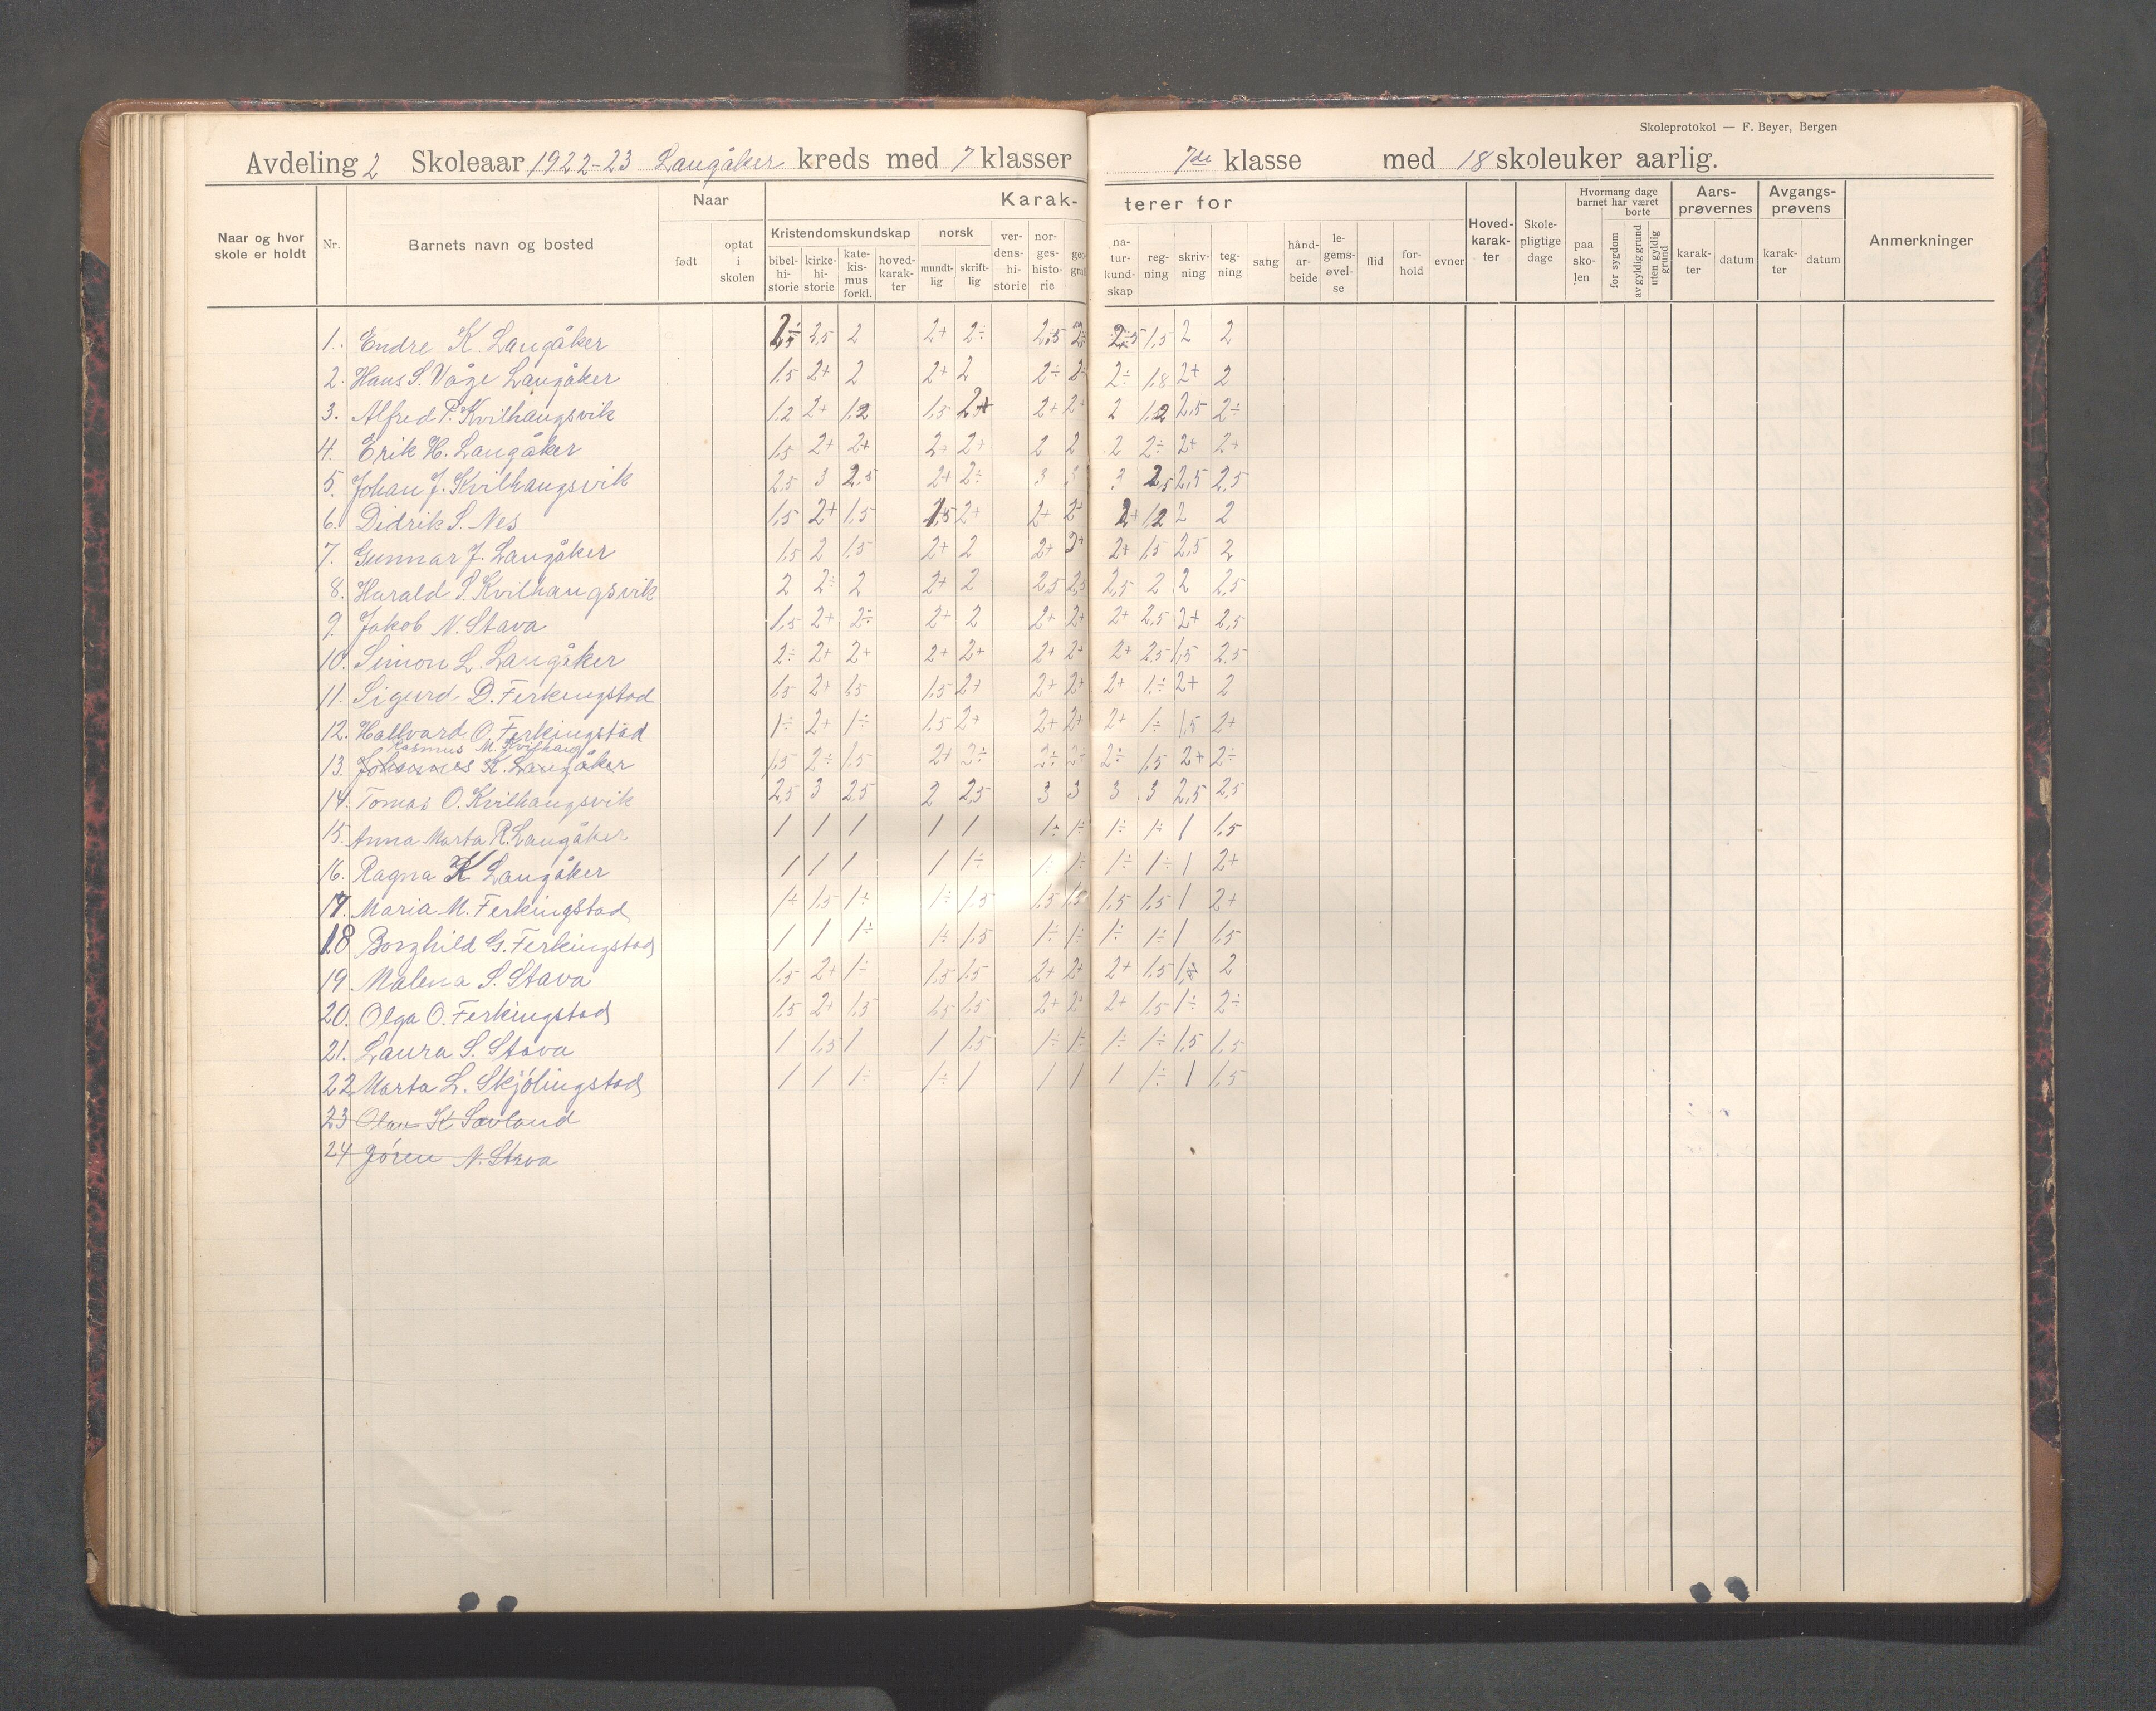 Skoleprotokol — F. Beyer, Bergen
Avdeling 2 Skoleaar 1922-23 Langåker kreds med 7 klasser 7de klasse med 18 skoleuker aarlig.
Naar og hvor skole er holdt Nr. Barnets navn og bosted Naar født optat i skolen Karak- terer for
Kristendomskundskap bibel-hi-storie kirke-hi-storie kate-kis-mus forkl. hoved-karak-ter norsk mundt-lig skrift-lig ver-dens-hi-storie nor-ges-histo-rie geo-gra
na-tur-kund-skap reg-ning skriv-ning teg-ning sang hånd-ar-beide le-gems-øvel-se flid for-hold evner
Hoved-karak-ter Skole-pligtige dage Hvormang dage barnet har været paa sko-len borte for sygdom av gyldig grund uten gyldig grund
Aars-prøvernes karak-ter datum Avgangs-prøvens karak-ter datum Anmerkninger
1. Endre K. Langåker 2,5 2 2+ 2÷ 2,5 2,5 1,5 2 2
2. Hans S. Våge Langåker 1,5 2+ 2 2+ 2 2÷ 2÷ 2÷ 1,8 2+ 2
3. Alfred P. Kvilhaugsvik 1,2 2+ 1,2 1,5 2+ 2+ 2+ 2 1,2 2,5 2÷
4. Erik H. Langåker 1,5 2+ 2+ 2+ 2+ 2 2 2 2÷ 2+ 2+
5. Johan J. Kvilhaugsvik 2,5 3 2,5 2+ 2÷ 3 3 3 2,5 2,5 2,5
6. Didrik S. Nes 1,5 2+ 1,5 1,5 2+ 2+ 2+ 2+ 1,2 2 2
7. Gunnar J. Langåker 1,5 2 1,5 2+ 2 2+ 2+ 2+ 1,5 2,5 2
8. Harald S. Kvilhaugsvik 2 2÷ 2 2+ 2 2,5 2,5 2,5 2 2 2,5
9. Jakob N. Stava 1,5 2+ 2÷ 2+ 2 2+ 2+ 2+ 2,5 2+ 2,5
10. Simon L. Langåker 2÷ 2+ 2+ 2+ 2+ 2+ 2+ 2+ 2,5 1,5 2,5
11. Sigurd D. Ferkingstad 1,5 2+ 1,5 1,5 2+ 2+ 2+ 2+ 1÷ 2+ 2
12. Hallvard O. Ferkingstad 1÷ 2+ 1÷ 1,5 2+ 2+ 2+ 2+ 1÷ 1,5 2+
Rasmus M. Kvilhaug
13. Johannes K. Langåker 1,5 2÷ 1,5 2+ 2÷ 2÷ 2÷ 2÷ 1,5 2+ 2÷
14. Tomas O. Kvilhaugsvik 2,5 3 2,5 2 2,5 3 3 3 3 2,5 2,5
15. Anna Marta R. Langåker 1 1 1 1 1 1÷ 1÷ 1÷ 1÷ 1 1,5
16. Ragna K Langåker 1 1 1 1 1÷ 1÷ 1÷ 1÷ 1÷ 1 2+
17. Maria M. Ferkingstad 1÷ 1,5 1÷ 1÷ 1,5 1,5 1,5 1,5 1,5 1 2+
18 Borghild G. Ferkingstad 1 1 1÷ 1÷ 1,5 1÷ 1÷ 1÷ 1÷ 1 1,5
19 Malena S. Stava 1,5 2+ 1÷ 1,5 1,5 2+ 2+ 2+ 1,5 1÷ 2
20. Olga O. Ferkingstad 1,5 2+ 1,5 1,5 1,5 2+ 2+ 2+ 1,5 1÷ 2÷
21. Laura S. Stava 1 1,5 1 1 1,5 1÷ 1÷ 1÷ 1÷ 1,5 1,5
22 Marta L. Skjölingstad 1 1 1÷ 1÷ 1 1 1 1 1÷ 1 1,5
23 Olav K Sævland
24 Jören N. Stava